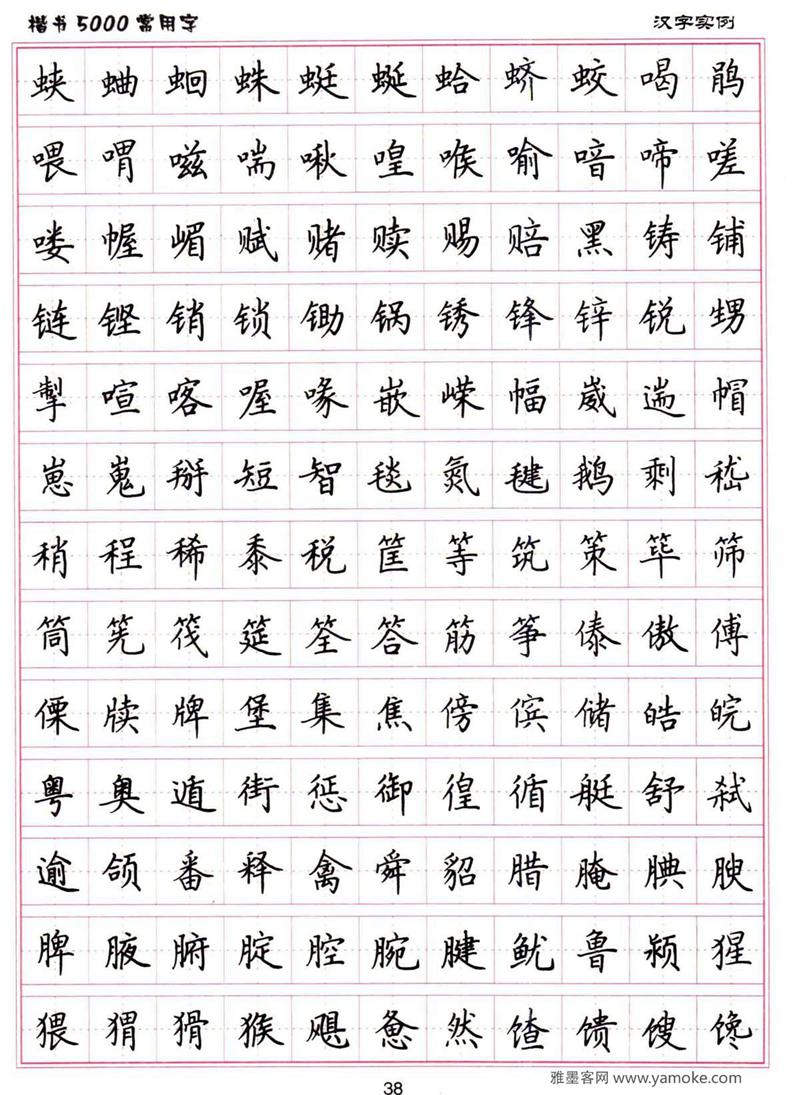 楷书5000常用字 汉字实例
蛱 蛐 蛔 蛛 蜓 蜒 蛤 蛴 蛟 喝 鹃
喂 喟 嗞 喘 啾 喤 喉 喻 喑 啼 嗟
喽 幄 嵋 赋 赌 赎 赐 赔 黑 铸 铺
链 铿 销 锁 锄 锅 锈 锋 锌 锐 甥
掣 喧 喀 喔 喙 嵌 嵘 幅 崴 遄 帽
崽 嵬 掰 短 智 毯 氮 毽 鹅 剩 嵇
稍 程 稀 黍 税 筐 等 筑 策 筚 筛
筒 筅 筏 筵 筌 答 筋 筝 傣 傲 傅
傈 牍 牌 堡 集 焦 傍 傧 储 皓 皖
粤 奥 遁 街 惩 御 徨 循 艇 舒 弑
逾 颌 番 释 禽 舜 貂 腊 腌 腆 腴
脾 腋 腑 腚 腔 腕 腱 鱿 鲁 颍 猩
猥 猬 猾 猴 飓 惫 然 馇 馈 馊 馋
38
雅墨客网 www.yamoke.com